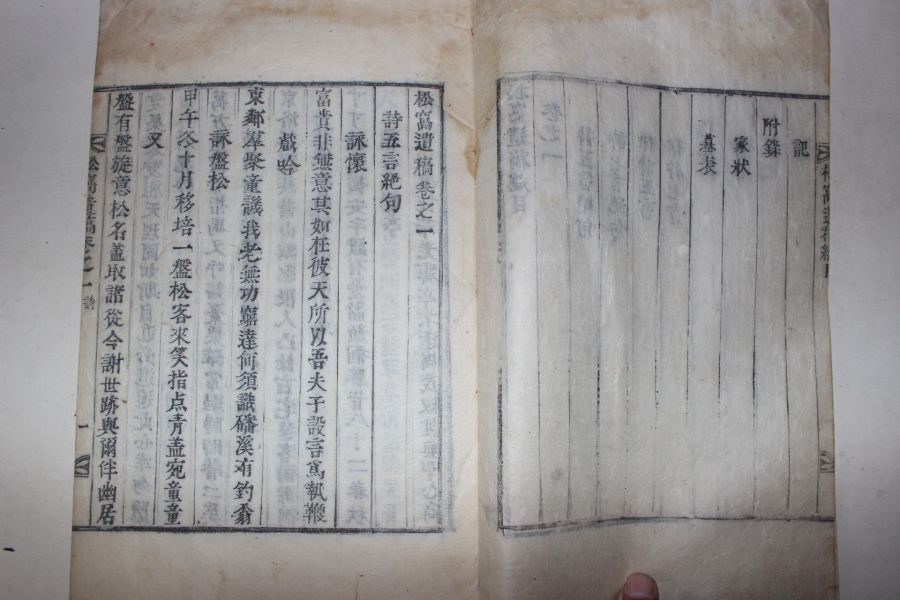 記
附錄
家狀
墓表
松窩遺稿卷之一
詩五言絶旬
詠懷
富貴非無意其如在彼天所以吾夫子設言爲執鞭
戲吟
東鄰羣聚童譏我老無功窮達何須識磻溪有釣翁
詠盤松
甲午冬十月移培一盤松客來笑指点青盖宛童童
又
盤有盤旋意松名盖取諸從今謝世跡與爾伴幽居
松窩遺稿卷之一 詩 一